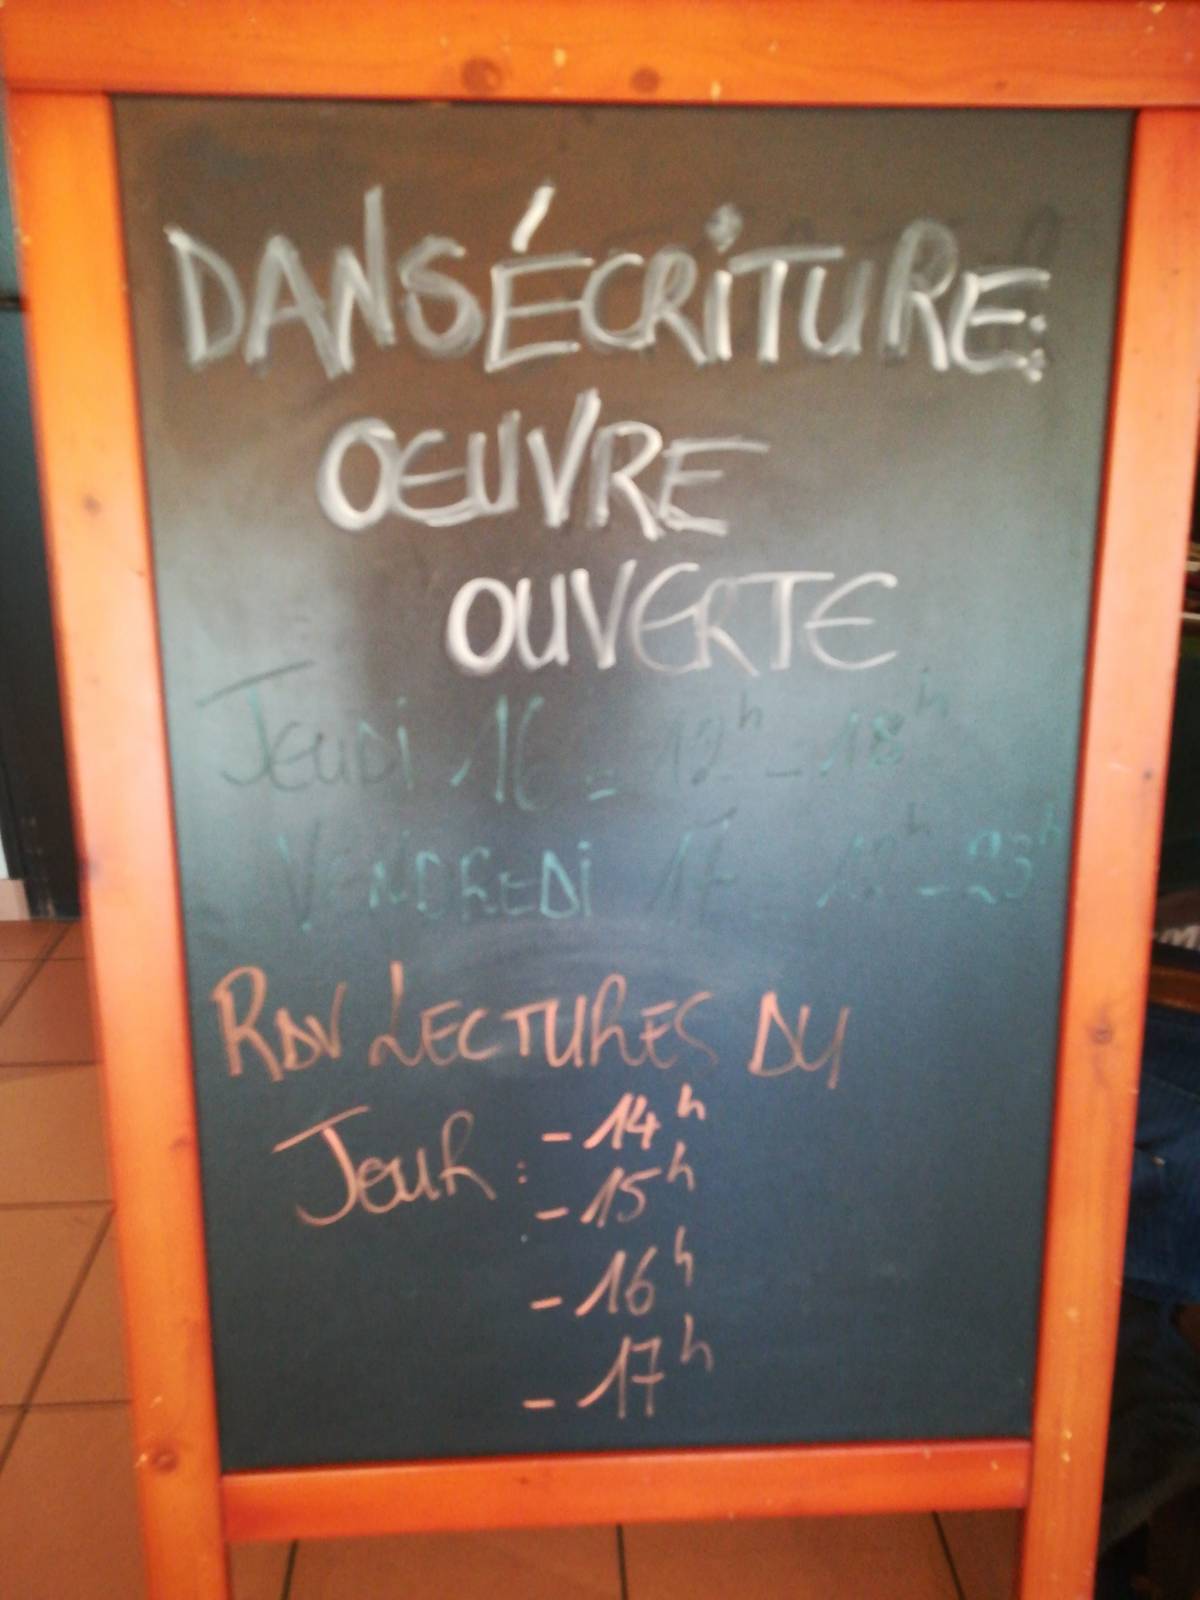 DANSÉCRITURE:
ŒUVRE
OUVERTE
JEUDI 16 = 12h - 18h
VENDREDI 17 12h - 23h
RDV LECTURES DU
JOUR : - 14h
- 15h
- 16h
- 17h